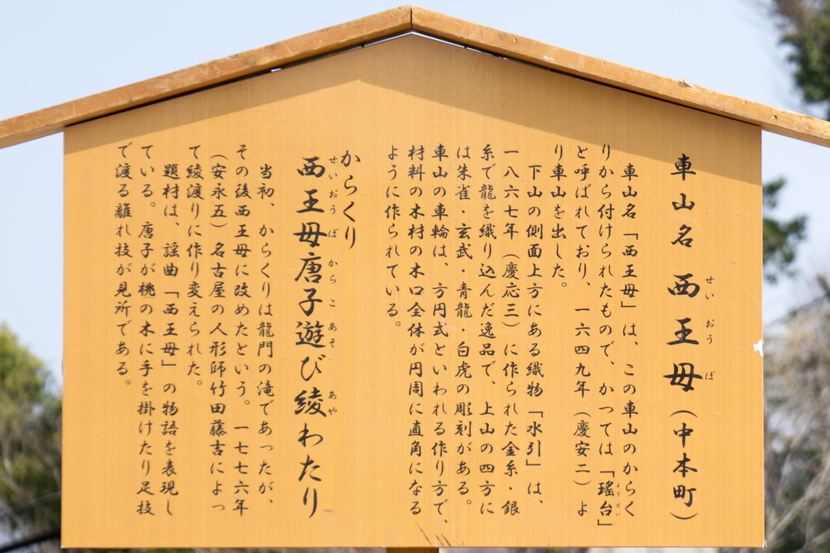 車山名 西王母(中本町)
せいおうば
車山名「西王母」は、この車山のからく
りから付けられたもので、かつては「瑤台」
ようだい
と呼ばれており、一六四九年(慶安二)よ
り車山を出した。
下山の側面上方にある織物「水引」は、
一八六七年(慶応三)に作られた金糸・銀
糸で龍を織り込んだ逸品で、上山の四方に
は朱雀・玄武・青龍・白虎の彫刻がある。
車山の車輪は、方円式といわれる作り方で、
材料の木村の木口全体が円周に直角になる
ように作られている。
からくり
西王母唐子遊び綾わたり
せいおうば からこあそ あや
当初、からくりは龍門の滝であったが、
その後西王母に改めたという。一七七六年
(安永五)名古屋の人形師竹田藤吉によっ
て綾渡りに作り変えられた。
題材は、謡曲「西王母」の物語を表現し
ている。唐子が桃の木に手を掛けたり足技
で渡る離れ技が見所である。